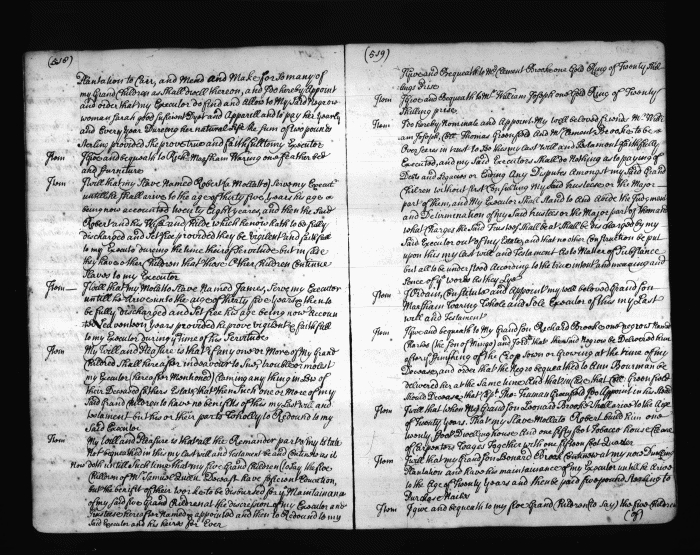 (518)
Plantation to Carr, and Mend and Make for so many of
my Grand Children as Shall dwell thereon, and I do hereby Appoint
and order that my Executor do find and allow to My Said Negroe
woman Sarah good Sufficient Dyet and Apparell and to pay her yearly
and Every Year Dureing her natural life the Sum of two pounds
Sterling provided She prove true and faithfull to my Executor
Item I give and bequeath to Rich.d Marsham Waring one feather bed
and furniture
Item I will that my Slave Named Robert (a Molatto) Serve my Execut.r
untill he Shall arive to the age of thirty five years his age
being now accounted twenty Eight years, and then the Said
Robert and his Wife and Child which he now hath to be fully
discharged and Set free provided they be vigilent and faithfull
to my Executor during the time of their Servitude but in case
they have other Children that those other Children Continue
Slaves to my Executor
Item I will that my Molatto Slave Named James, Serve my Executor
untill he arive unto the age of thirty five years & then to
be fully discharged and Set free his age being now accoun
ted Seventeen years provided he prove vigilent & faithfull
to my Executor during time of his Servitude
Item My Will and Pleasure is that if any one or More of My Grand
Children Shall hereafter indeavour to Sue, trouble or molest
my Executor (hereafter Mentioned) Claiming any thing in
their Deceased Fathers Estate, that then Such one or More of my
Said Grand Children to have no benefits of this my Last will and
testament but his or their parts Wholly to Redound to my
Said Executor
Item My Will and Pleasure is that all the Remander part of my Estate
Not bequeathed in this my Last Will and Testament be and Continue as it
Now doth untill Such time that my five Grand Children (to Say the five
Children of M.r Samuel Queen Deceas'd) have Sufficient Education,
but the benefit of their Works to be disbursed for y.e Maintainance
of my Said five Grand Children at the discresion of my Executor and
trustees hereafter Named & appointed and then to Redound to my
Said Executor and his heires for Ever
(519)
I give and Bequeath to M.r Clement Brooke one Gold Ring of Twenty Shil
lings Price
Item I give and Bequeath to M.r William Joseph one Gold Ring of Twenty
Shilling price
Item I do hereby Nominate and Appoint My well beloved friends M.r Willi
am Joseph, Coll. Thomas Greenfield and M.r Clement Brooke to be
Overseers in trust to See this my Last will and Testament faithfully
Executed, and my Said Executors Shall do Nothing as to paying of
Debts and Legacies or Ending Any Disputes Amongst my Said Grand
Children without first Consulting my Said trustees or the Major
part of them, and My Executor Shall Stand to and Abide the Judgment
and Determination of my Said trustees or the Major part of them and
what Charges the Said trustees Shall be at Shall be discharged by my
Said Executor out of my Estate, and that no other Construction be put
upon this my Last will and Testament as to Matter of Substance
but all to be understood According to the true intent and meaning and
Sence of y.e words as they Lye
Item I Ordain, Constitute and Appoint my well beloved Grand Son
Marsham Waring Whole and Sole Executor of this my Last
will and Testament
Item I give and bequeath to My Grand Son Richard Brooke one negro Named
Charles (the Son of Mingo) and Joseph that the Said Negroes be Delivered him
after y.e finishing of the Crop Sown or Growing at the time of my
Decease, and order that the Negroe bequeathed to Ann Bourman be
delivered her at the Same time And that in Case that Coll. Greenfield
Should Decease that Cap.t Tho. Truman Greenfield I do Appoint in his Stead
Item I will that when My Grand Son Leonard Brooke Shall arive to the Age
of Twenty Years That my Slave Molatto Robert build him one
twenty foot Dwelling house and one fifty foot Tobacco house
of Carpenters Wages Together with one fifteen foot Quarter
Item I will that my Grand Son Leonard Brooke Continue at my now Dwelling
Plantation and have his maintainance of my Executor untill he arive
to the Age of Twenty Years and then be paid five pounds Sterling to
Purchase Nailes
Item I give and bequeath to my five Grand Children (to Say) the five Children
(of)